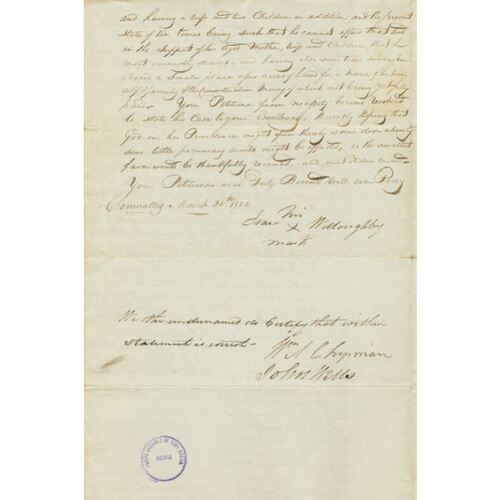 and having a wife and two Children in addition and the present
State of the times being such that he cannot afford that aid
in the Support of his aged Mother, wife and Children, that he
most earnestly desires, and having also some time since pur
chased a Small place upon a
a home for him
Self & family the
Money of which not being yet fully
paid. Your Petitioner from necessity became
to State his Case to your Excellency, Humbly Hoping that
God in his Providence might open thereby some door whereby
some little pecuniary aid might be
, as the smallest
favor would be thankfully received, and
Your Petitioner as in Duty Bound will ever Pray
Cornwallis March 26th 1822
Isaac his x mark Willoughby
We the undernamed do Certify that within
statement is correct-
Wm A Chipman
John Wells
PUBLIC ARCHIVES OF NOVA SCOTIA
HALIFAX